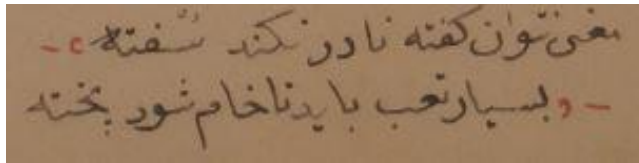 معنی توان گفته نادر نکند سفته
و بسیار تعب باید تا خام شود پخته